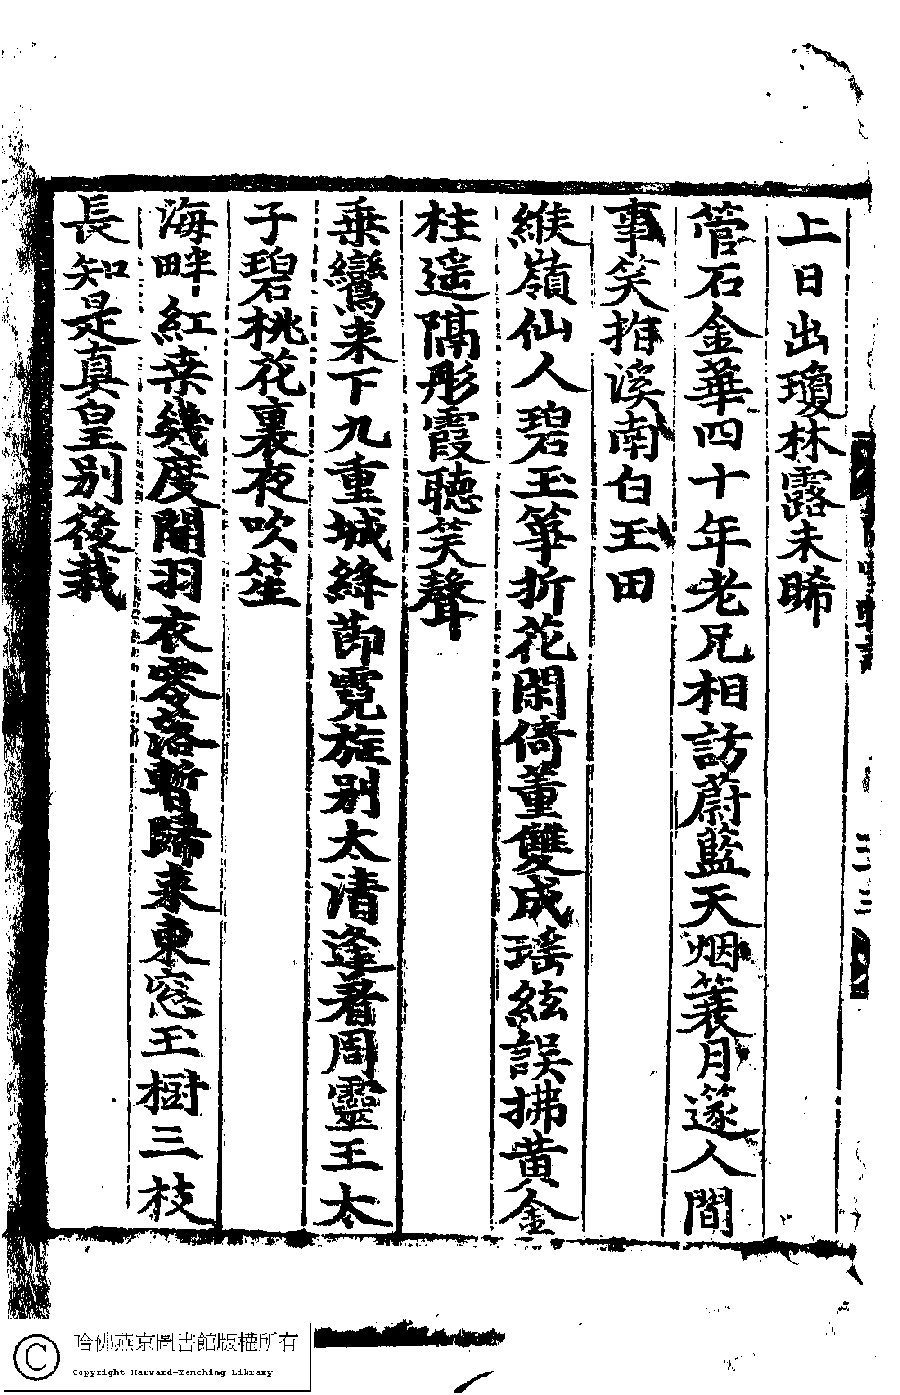 上日出瓊林露未晞
管石金華四十年老兄相訪蔚藍天烟蓑月篴人間
事笑指溪南白玉田
緱嶺仙人碧玉箏折花閑倚董雙成瑤絃誤拂黃金
柱遥隔彤霞聽笑聲
乗鸞来下九重城絳節霓旌别太清逢着周靈王太
子碧桃花裏夜吹笙
海畔紅桒幾度開羽衣零落暫歸来東窓玉樹三枝
長知是真皇别後栽
哈佛燕京圖書館版權所有
Copyright Harvard-Yenching Library